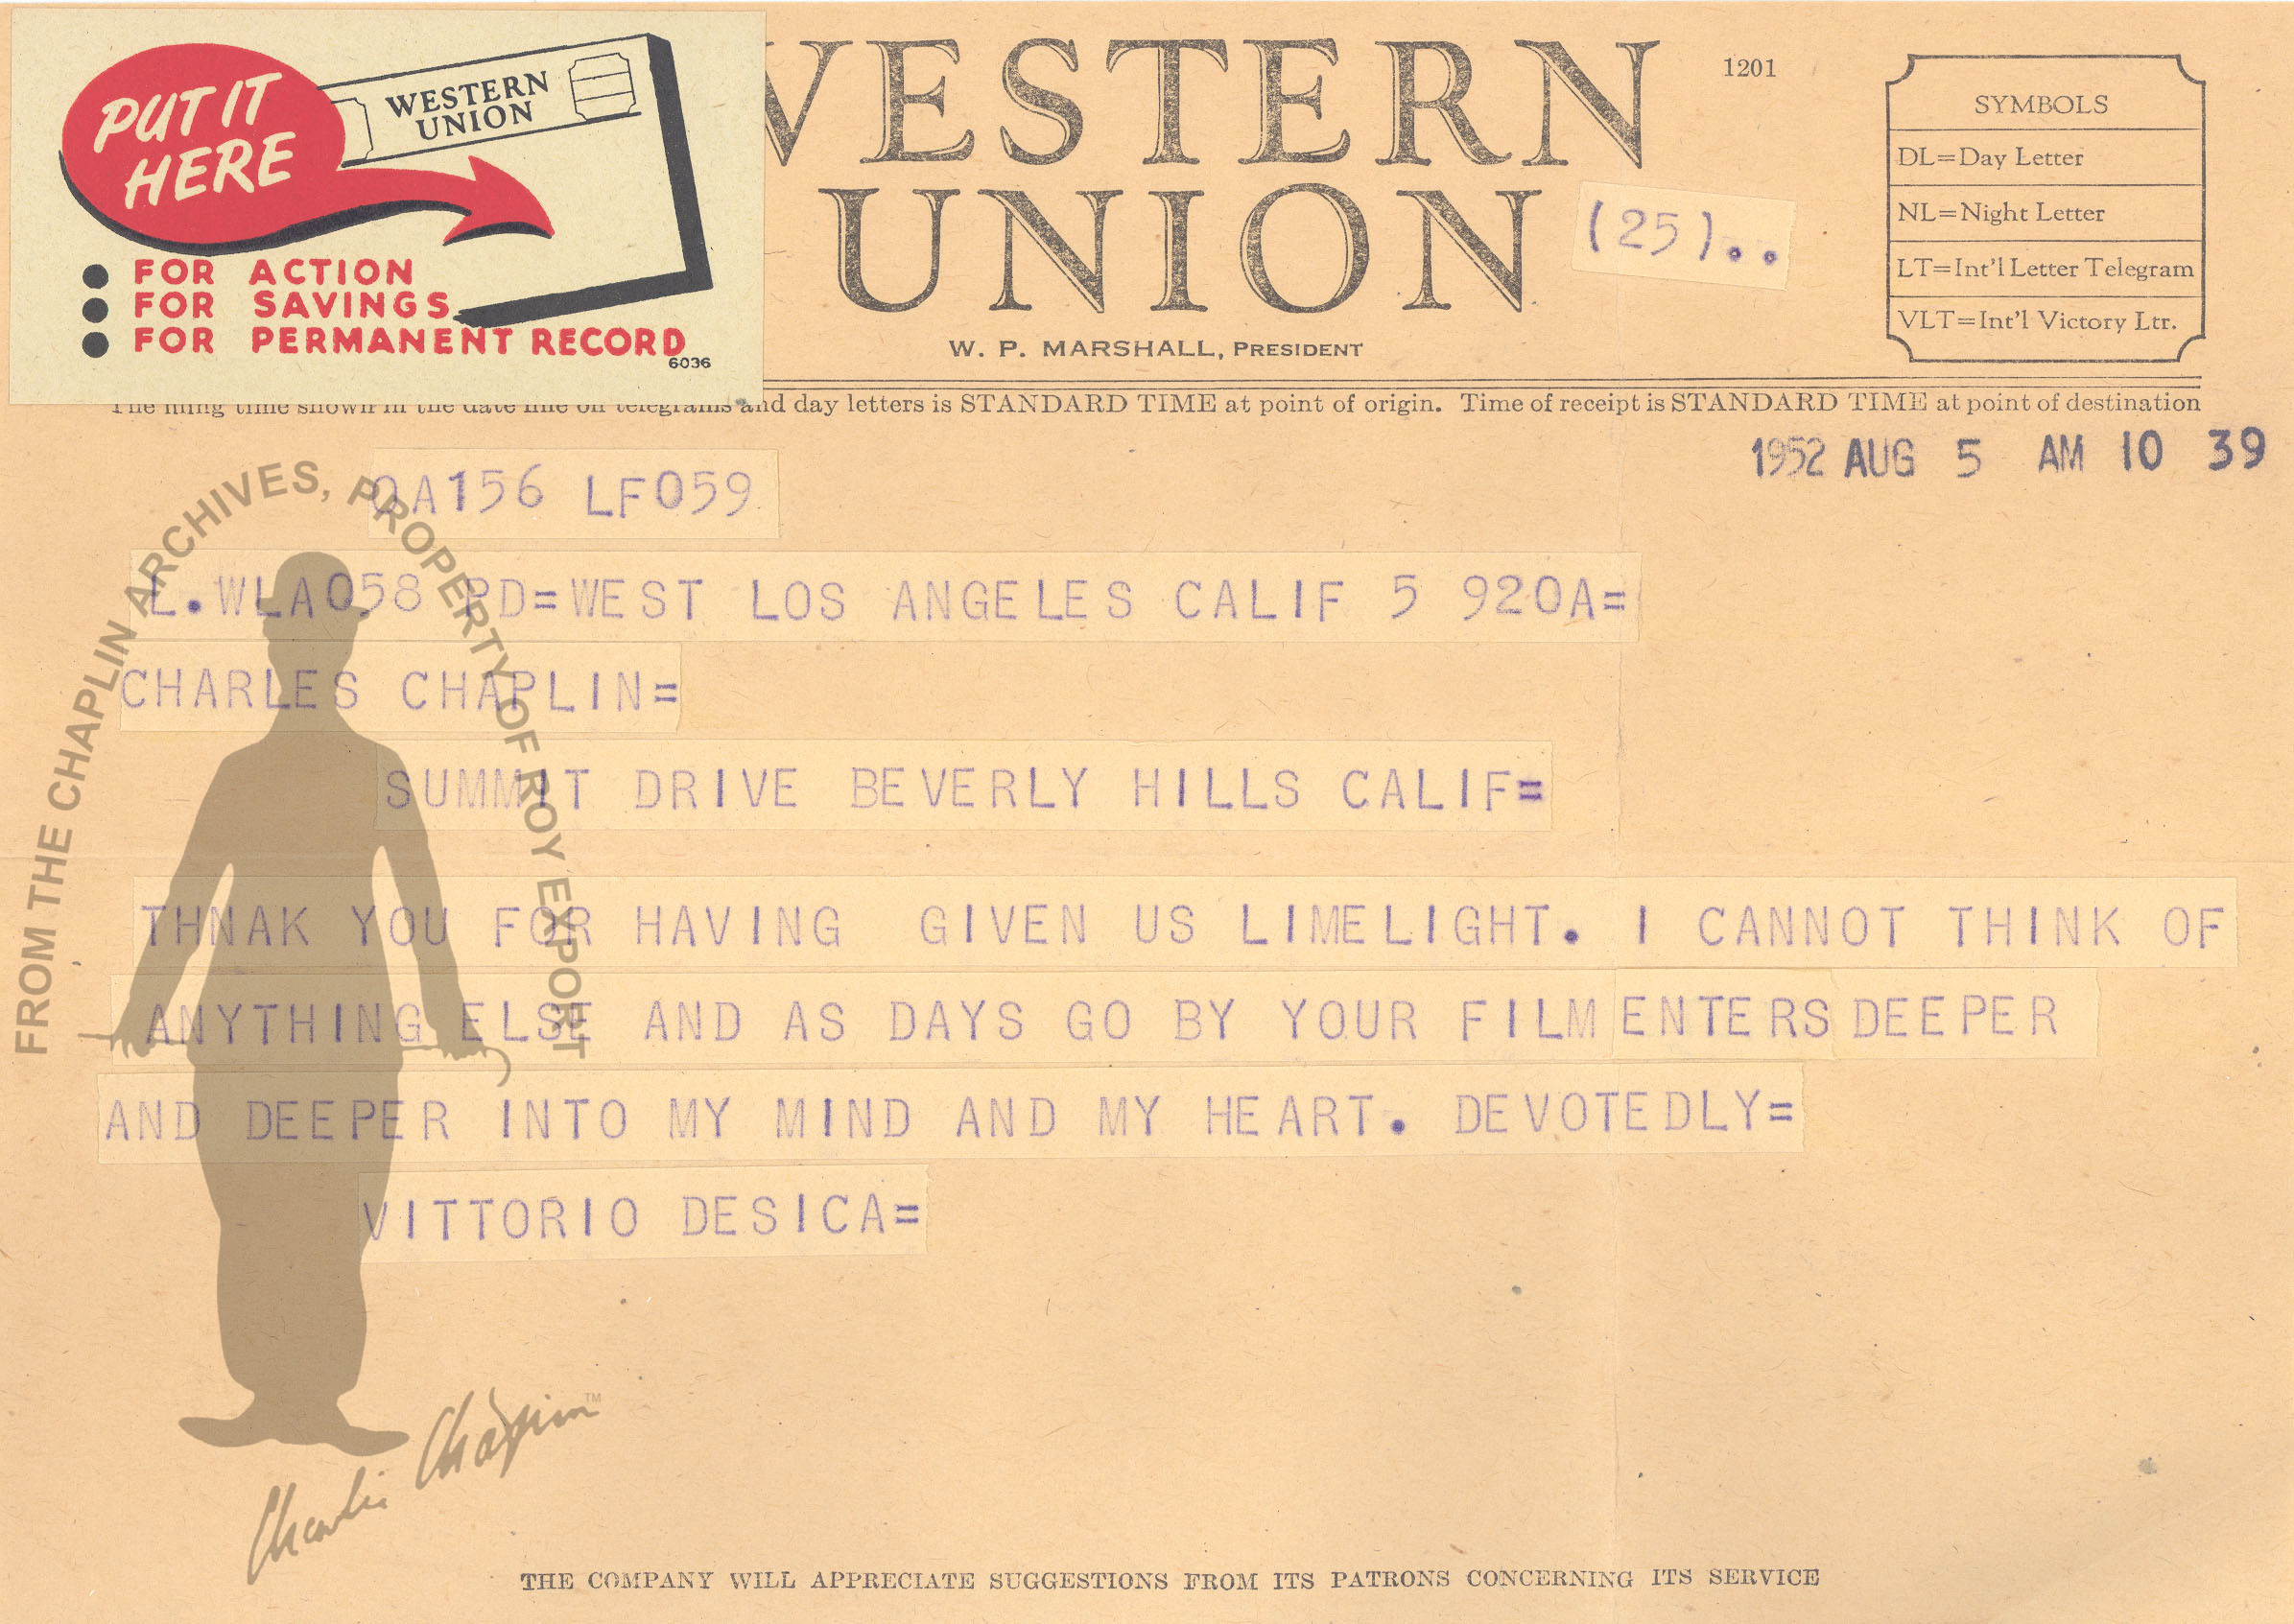 PUT IT
HERE
WESTERN
UNION
FOR ACTION
FOR SAVINGS
FOR PERMANENT RECORD
6036
WESTERN
UNION
1201
(25)..
W. P. MARSHALL, PRESIDENT
SYMBOLS
DL=Day Letter
NL=Night Letter
LT=Int'l Letter Telegram
VLT=Int'l Victory Ltr.
The filing time shown in the date line on telegrams and day letters is STANDARD TIME at point of origin. Time of receipt is STANDARD TIME at point of destination
1952 AUG 5 AM 10 39
OA156 LF059
L.WLA058 PD=WEST LOS ANGELES CALIF 5 920A=
CHARLES CHAPLIN=
SUMMIT DRIVE BEVERLY HILLS CALIF=
THNAK YOU FOR HAVING GIVEN US LIMELIGHT. I CANNOT THINK OF
ANYTHING ELSE AND AS DAYS GO BY YOUR FILM ENTERS DEEPER
AND DEEPER INTO MY MIND AND MY HEART. DEVOTEDLY=
VITTORIO DESICA=
FROM THE CHAPLIN ARCHIVES, PROPERTY OF ROY EXPORT
Charlie Chaplin™
THE COMPANY WILL APPRECIATE SUGGESTIONS FROM ITS PATRONS CONCERNING ITS SERVICE